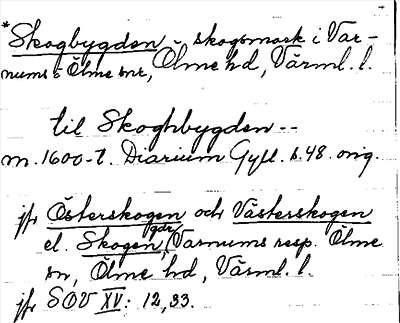 *Skogbygden - skogsmark i Var-
nums o Ölme snr, Ölme hd, Värml. l.
til Skoghbygden --
m. 1600-t. Diarium Gyll. s. 48. orig.
jfr Österskogen och Västerskogen
el. Skogen, gdr, Varnums resp. Ölme
sn, Ölme hd, Värml. l.
jfr SOV XV: 12, 33.